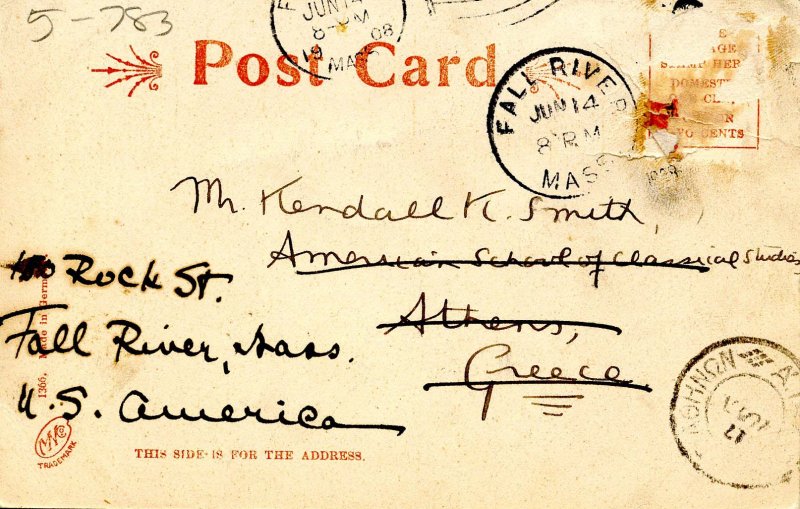 5-783
JUN 14
8-PM
19 08
MASS
Post Card
FALL RIVER
JUN 14
8 PM
MASS
AGE
STAMP HER
DOMEST
CENTS
Mr. Kendall K. Smith,
American School of Classical Studies
Athens,
Greece.
Rock St.
Fall River, Mass.
U.S. America
1366. Made in Germ
TRADEMARK
THIS SIDE IS FOR THE ADDRESS.
ΑΘΗΝΩΝ
17